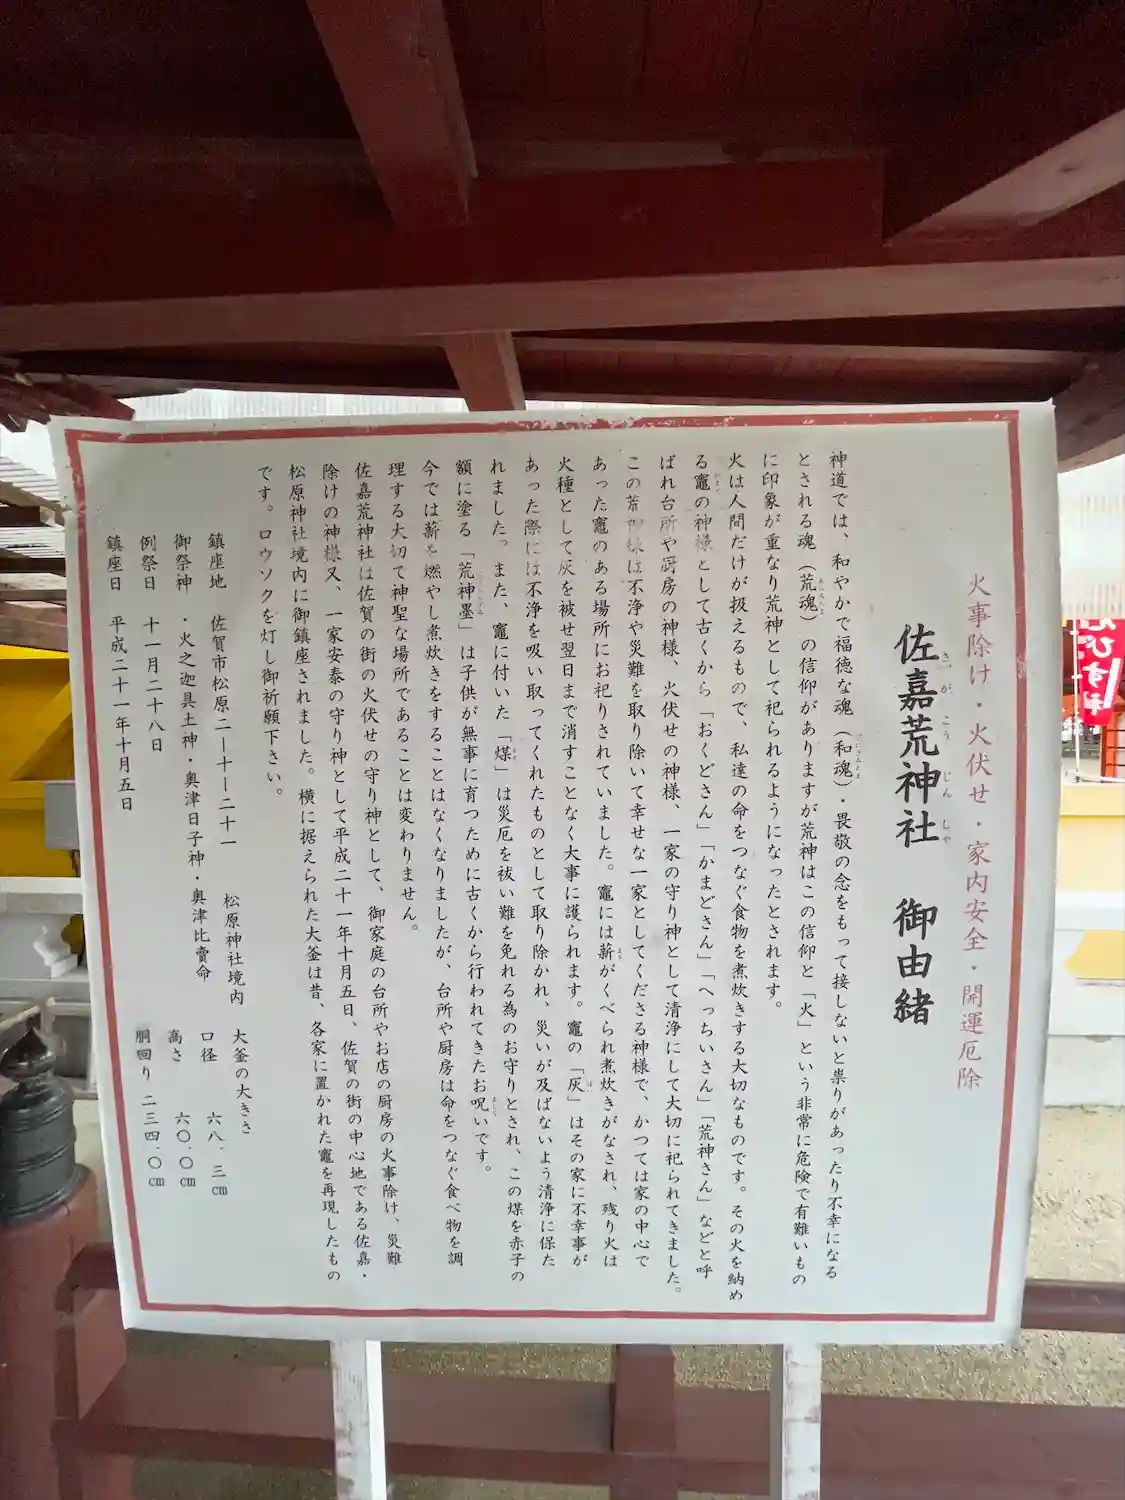 火事除け・火伏せ・家内安全・開運厄除
佐嘉荒神社 御由緒
さ が こう じん しゃ
神道では、和やかで福徳な魂（和魂）・畏敬の念をもって接しないと祟りがあったり不幸になる
とされる魂（荒魂）の信仰がありますが荒神はこの信仰と「火」という非常に危険で有難いもの
に印象が重なり荒神として祀られるようになったとされます。
火は人間だけが扱えるもので、私達の命をつなぐ食物を煮炊きする大切なものです。その火を納め
る竈の神様として古くから「おくどさん」「かまどさん」「へっちいさん」「荒神さん」などと呼
ばれ台所や厨房の神様、火伏せの神様、一家の守り神として清浄にして大切に祀られてきました。
この荒神様は不浄や災難を取り除いて幸せな一家としてくださる神様で、かつては家の中心で
あった竈のある場所にお祀りされていました。竈には薪がくべられ煮炊きがなされ、残り火は
火種として灰を被せ翌日まで消すことなく大事に護られます。竈の「灰」はその家に不幸事が
あった際には不浄を吸い取ってくれたものとして取り除かれ、災いが及ばないよう清浄に保た
れました。また、竈に付いた「煤」は災厄を祓い難を免れる為のお守りとされ、この煤を赤子の
額に塗る「荒神墨」は子供が無事に育つために古くから行われてきたお呪いです。
今では薪を燃やし煮炊きをすることはなくなりましたが、台所や厨房は命をつなぐ食べ物を調
理する大切で神聖な場所であることは変わりません。
佐嘉荒神社は佐賀の街の火伏せの守り神として、御家庭の台所やお店の厨房の火事除け、災難
除けの神様又、一家安泰の守り神として平成二十一年十月五日、佐賀の街の中心地である佐嘉・
松原神社境内に御鎮座されました。横に据えられた大釜は昔、各家に置かれた竈を再現したもの
です。ロウソクを灯し御祈願下さい。
鎮座地 佐賀市松原二ー十ー二十一 松原神社境内
御祭神 ・火之迦具土神・奥津日子神・奥津比賣命
例祭日 十一月二十八日
鎮座日 平成二十一年十月五日
大釜の大きさ
口径 六八.三㎝
高さ 六〇.〇㎝
胴回り 二三四.〇㎝